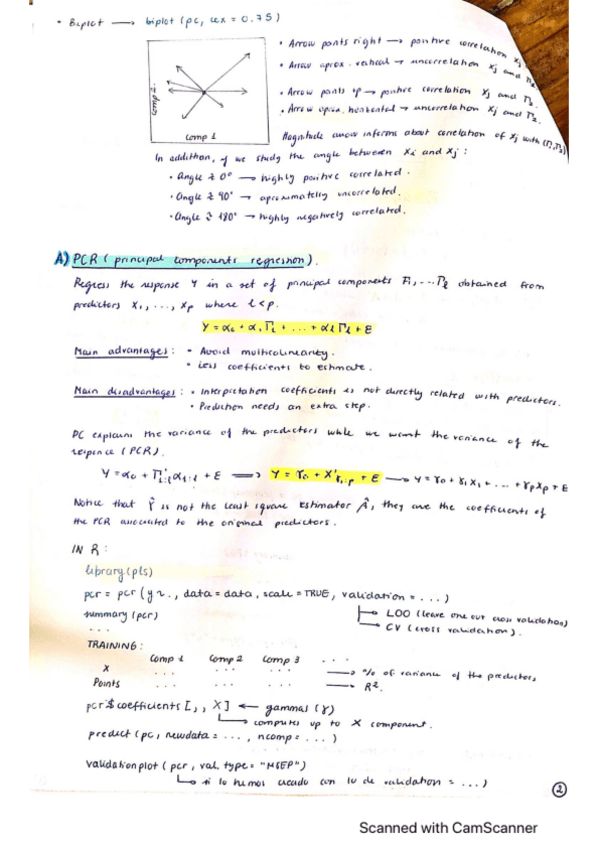 • Biplot → biplot (pc, cex = 0.75)
• Arrow points right → positive correlation Xj
• Arrow aprox. vertical → uncorrelation Xj and
• Arrow points up → positive correlation Xj and Γ2.
• Arrow aprox. horizontal → uncorrelation Xj and Γ2.
comp 2
comp 1
Magnitude arrow informs about correlation of Xj with (Γ1,Γ2)
In addition, if we study the angle between Xi and Xj :
• Angle ≈ 0° → highly positive correlated.
• Angle ≈ 90° → aproximatelly uncorrelated.
• Angle ≈ 180° → highly negatively correlated.
A) PCR (principal components regression).
Regress the response Y in a set of principal components Γ1, ... Γl obtained from
predictors X1, ..., Xp where l < p.
Y = α0 + α1Γ1 + ... + αlΓl + ε
Main advantages : • Avoid multicolinearity.
• Less coefficients to estimate.
Main disadvantages : • Interpretation coefficients is not directly related with predictors.
• Prediction needs an extra step.
PC explains the variance of the predictors while we want the variance of the
response (PCR).
Y = α0 + Γ'1:l α1:l + ε ⟹ Y = γ0 + X'γ1:p + ε → Y = γ0 + γ1X1 + ... + γpXp + ε
Notice that γ̂ is not the least square estimator β̂, they are the coefficients of
the PCR associated to the original predictors.
IN R :
library(pls)
pcr = pcr (y ~ ., data = data, scale = TRUE, validation = ...)
LOO (leave one out cross validation)
summary (pcr)
CV (cross validation).
...
TRAINING :
comp 1 comp 2 comp 3 ...
X ... ... ... → % of variance of the predictors
Points ... ... ... → R2.
pcr$coefficients [, , X] ← gammas (γ)
computes up to X component.
predict (pc, newdata = ..., ncomp = ...)
validationplot (pcr, val.type = "MSEP")
si lo hemos creado con lo de validation = ...)
2
Scanned with CamScanner